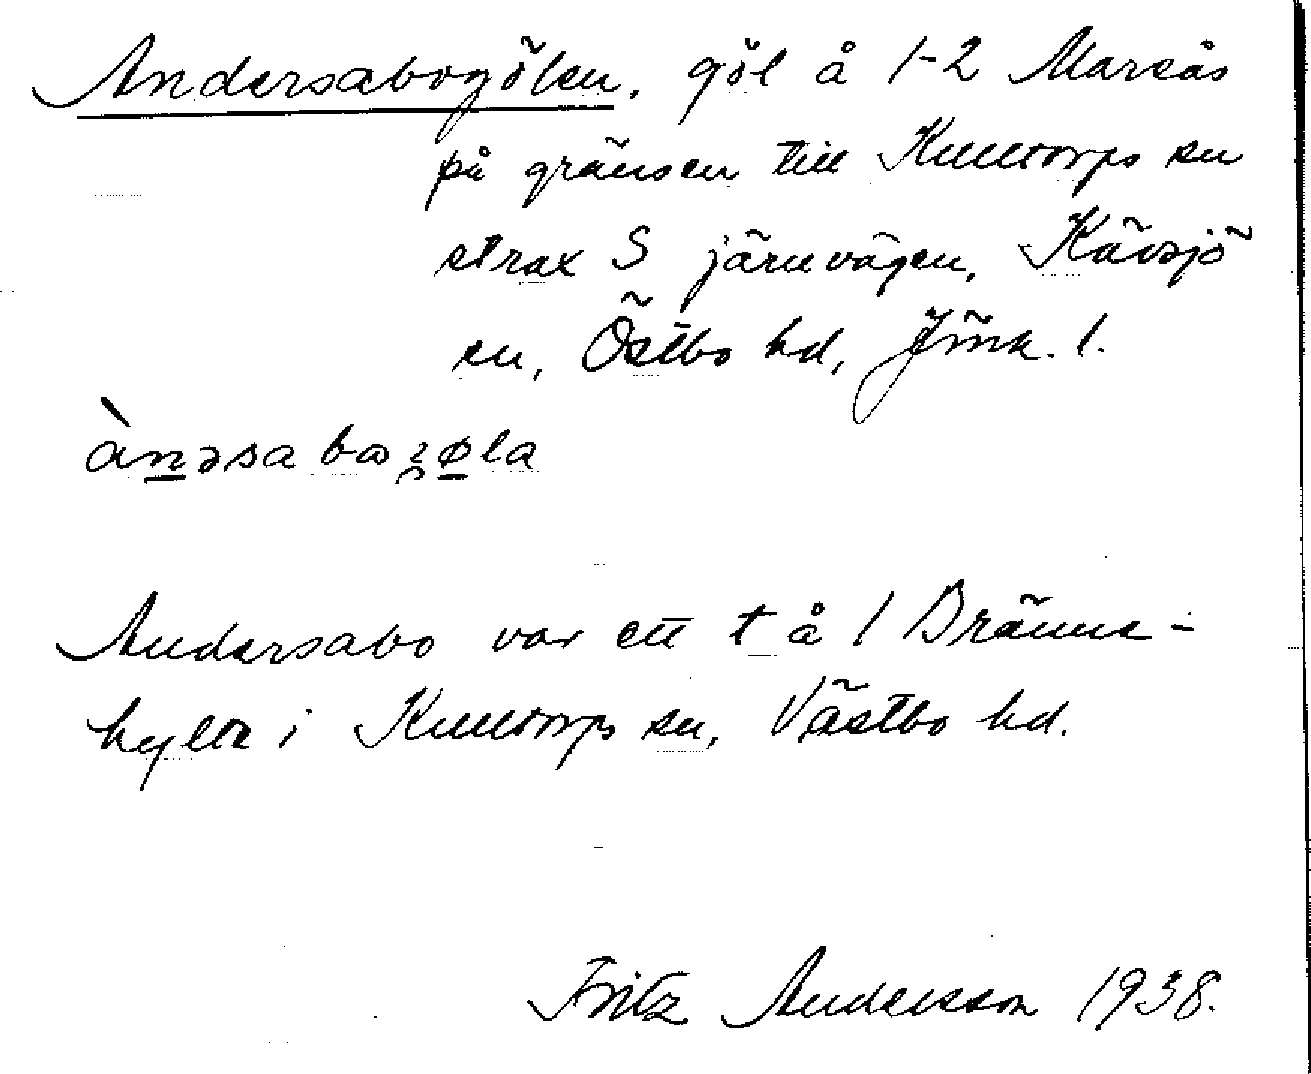 Andersabogölen, göl å 1-2 Mareås
på gränsen till Kulltorps sn
strax S järnvägen, Kävsjö
sn, Östbo hd, Jönk. l.
Andersabo var ett t å 1 Bränne-
hylte i Kulltorps sn, Västbo hd.
Fritz Andersson 1938.